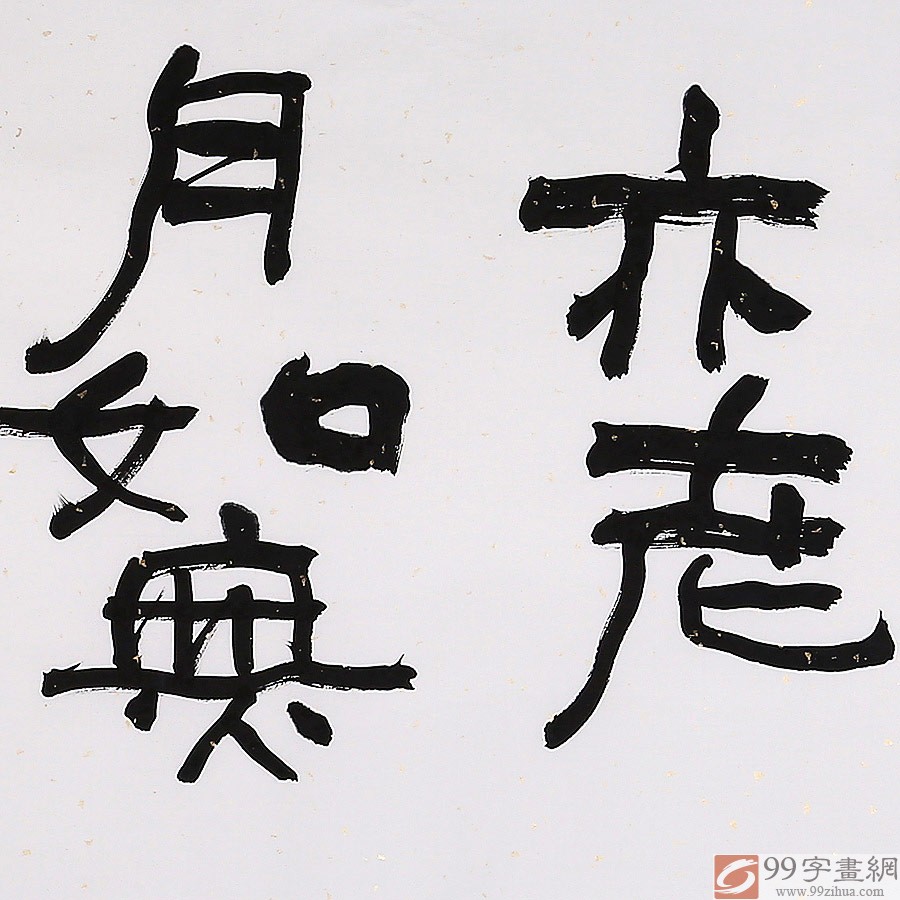 亦老
月如無
99字畫網
www.99zihua.com